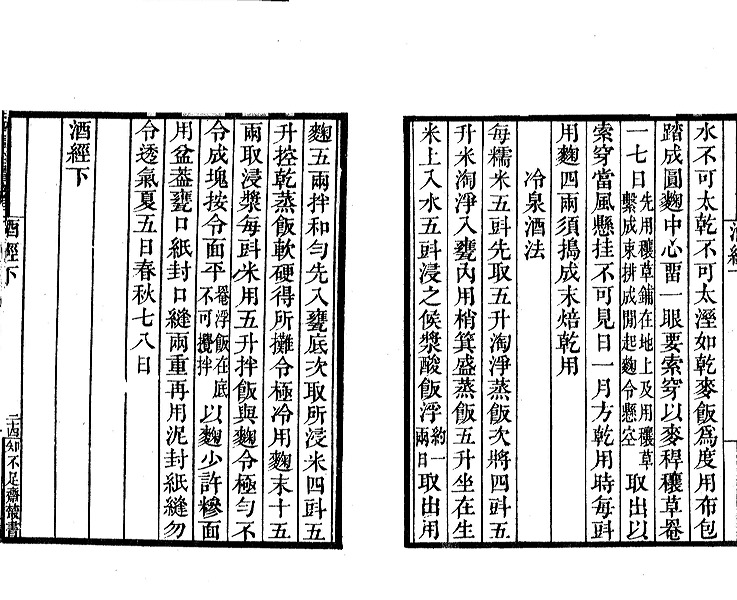 水不可太乾不可太溼如乾麥飯爲度用布包
踏成圓麴中心畱一眼要索穿以麥稈穰草罨
一七日先用穰草鋪在地上及用穰草繫成束排成閒起麴令懸空取出以
索穿當風懸挂不可見日一月方乾用時每㪷
用麴四兩須搗成末焙乾用
冷泉酒法
每糯米五㪷先取五升淘淨蒸飯次將四㪷五
升米淘淨入甕內用梢箕盛蒸飯五升坐在生
米上入水五㪷浸之候漿酸飯浮約一兩日取出用
麴五兩拌和勻先入甕底次取所浸米四㪷五
升控乾蒸飯軟硬得所攤令極冷用麴末十五
兩取浸漿每㪷米用五升拌飯與麴令極勻不
令成塊按令面平罨浮飯在底不可攪拌以麴少許糝面
用盆葢甕口紙封口縫兩重再用泥封紙縫勿
令透氣夏五日春秋七八日
酒經下
酒經下
二十四
知不足齋叢書